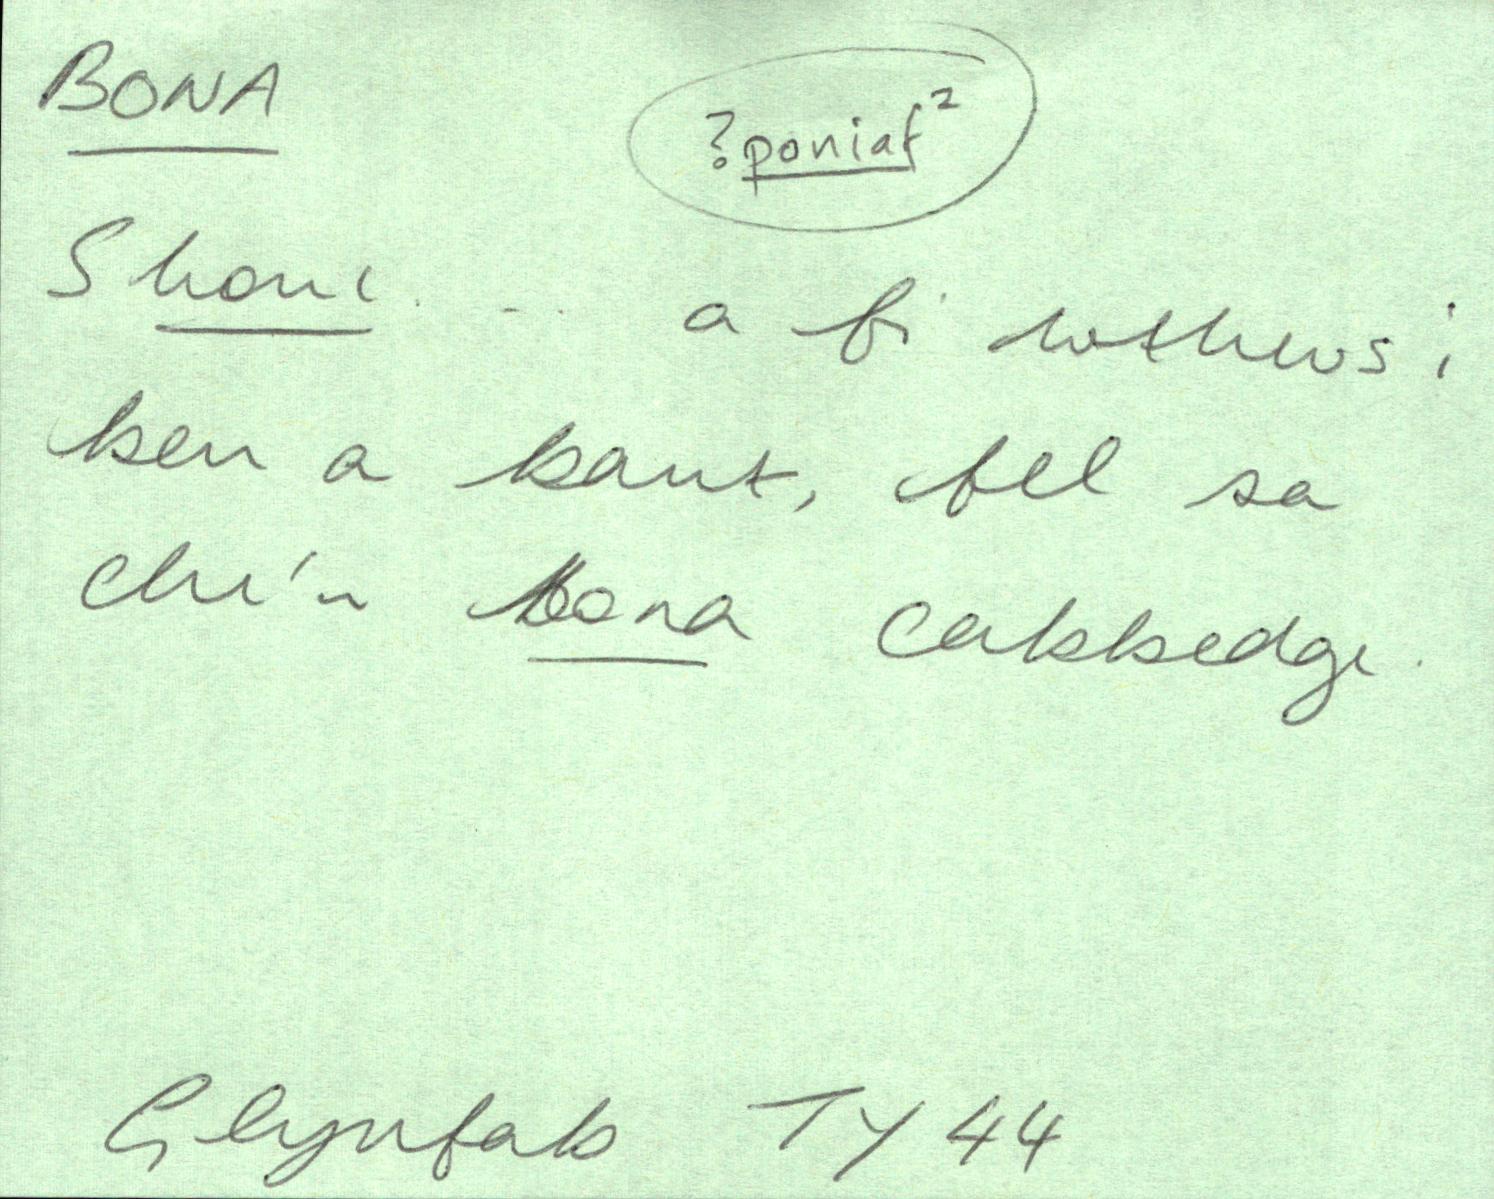 BONA
?poniaf²
Shoni ... a fi wthws i
ben a bant, fel sa
chi'n bona cabbedge.
Glynfab TY 44